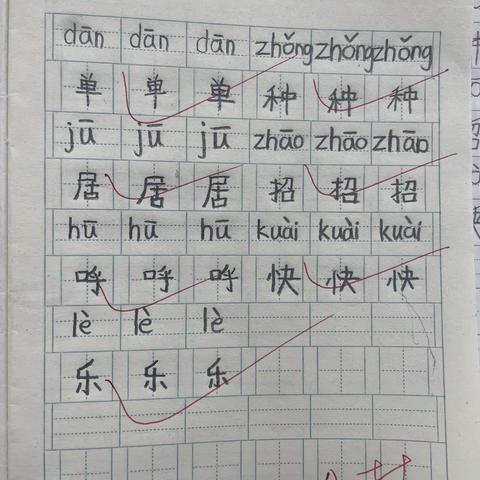 dān dān dān zhǒng zhǒng zhǒng
单 单 单 种 种 种
jū jū jū zhāo zhāo zhāo
居 居 居 招 招 招
hū hū hū kuài kuài kuài
呼 呼 呼 快 快 快
lè lè lè
乐 乐 乐